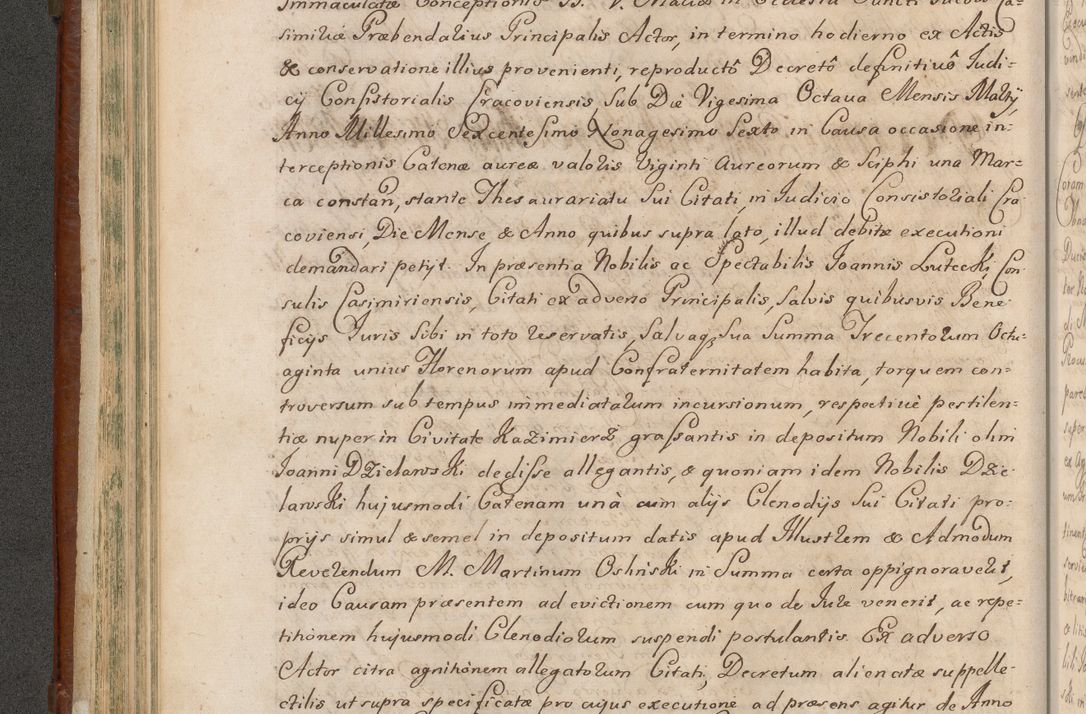 Immaculatæ Conceptionis B. V. Mariæ in Ecclesia Sancti Jacobi Ca=
simiriæ Præbendarius Principalis Actor, in termino hodierno ex Actis
& conservatione illius provenienti, reproductô Decretô definitivô Judi=
cij Consistorialis Cracoviensis Sub Die Vigesima Octava Mensis Martij,
Anno Millesimo Sexcentesimo Nonagesimo Sexto in Causa occasione in=
terceptionis Catenæ aureæ valoris Viginti Aureorum & Sciphi una Mar=
ca constan, stante Thesaurariatu Sui Citati, in Judicio Consistoriali Cra
coviensi, Die Mense, & Anno quibus supra lato, illud debitæ executioni
demandari petijt. In præsentia Nobilis ac Spectabilis Joannis Lutecki, Con
sulis Casimiriensis, Citati ex adverso Principalis, Salvis quibusvis Bene
ficijs Juris Sibi in toto reservatis, Salvaq Sua Summa Trecentorum Octu=
aginta unius Florenorum apud Confraternitatem habita, torquem con=
troversum sub tempus immediatarum incursionum, respective pestilen=
tiæ nuper in Civitate Kazimierz grassantis in depositum Nobili olim
Joanni Dzielawski dedisse allegantis, & quoniam idem Nobilis Dzie
lawski hujusmodi Catenam unà cum alijs Clenodijs Sui Citati pro=
prijs simul & semel in depositum datis apud Illustrem & Admodum
Reverendum M. Martinum Oslinski in Summa certa oppignoraverit,
ideo Causam præsentem ad evictionem cum quo de Jure venerit, ac repe=
titionem hujusmodi Clenodiorum suspendi postulantis. Ex adverso
Actor citra agnitionem allegatorum Citati, Decretum alienatæ suppelle=
ctilis ut supra specificatæ pro cujus executione ad præsens agitur de Anno